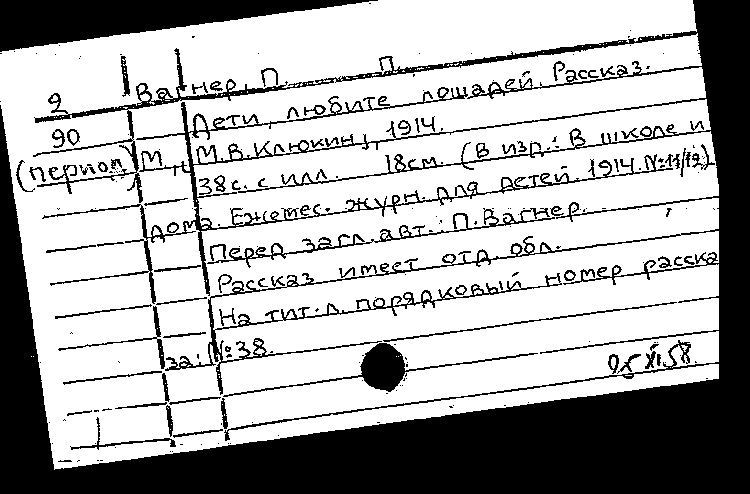 Вагнер, П. П.
9
90
(период)
Дети, любите лошадей. Рассказ.
М., М.В.Клюкин, 1914.
38с. с илл. 18см. (В изд.: В школе и
дома. Ежемес. журн. для детей. 1914. №11/12)
Перед загл. авт.: П. Вагнер.
Рассказ имеет отд. обл.
На тит. л. порядковый номер расска
за: №38.
25 XI.58.